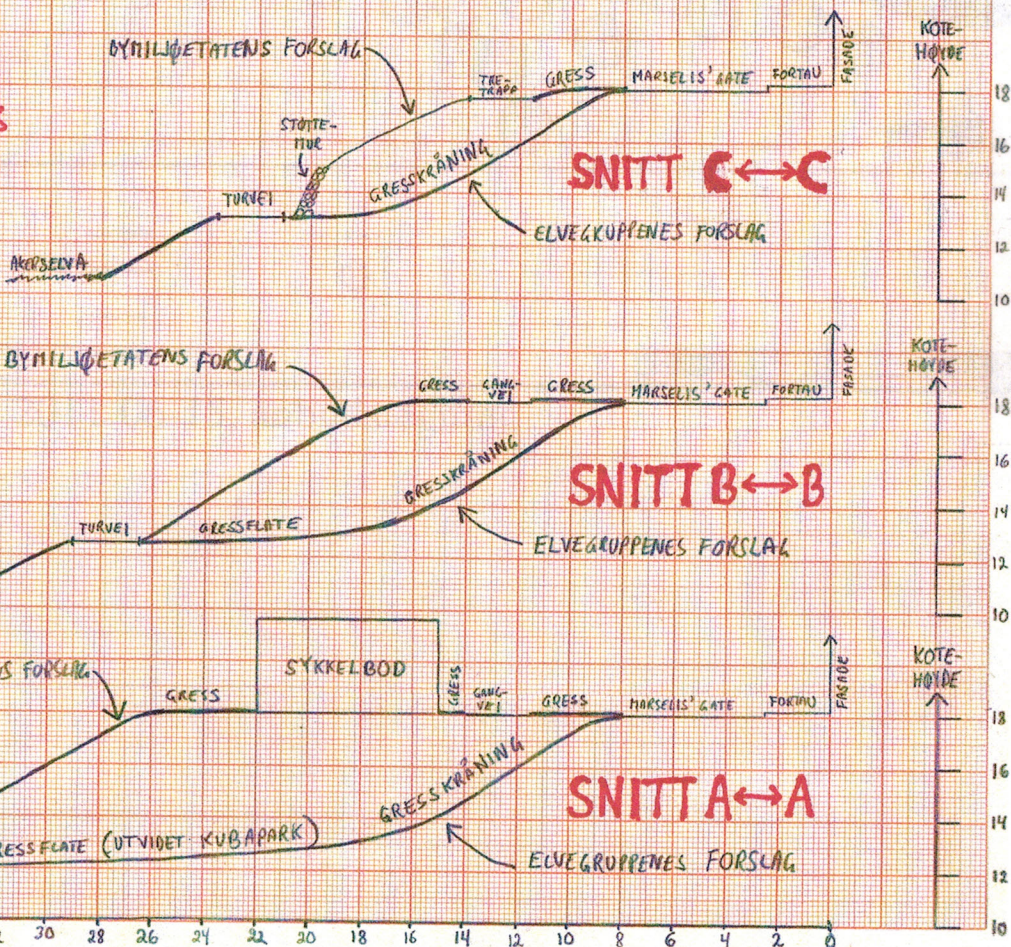 BYMILJØETATENS FORSLAG
STØTTE-
MUR
TRE-
TRAPP
GRESS
MARSELIS' GATE
FORTAU
FASADE
KOTE-
HØYDE
18
16
14
12
10
TURVEI
AKERSELVA
GRESSKRÅNING
SNITT C↔C
ELVEGRUPPENES FORSLAG
BYMILJØETATENS FORSLAG
GRESS
GANG-
VEI
GRESS
MARSELIS' GATE
FORTAU
FASADE
KOTE-
HØYDE
18
16
14
12
10
TURVEI
GRESSFLATE
GRESSKRÅNING
SNITT B↔B
ELVEGRUPPENES FORSLAG
S FORSLAG
GRESS
SYKKELBOD
GRESS
GANG-
VEI
GRESS
MARSELIS' GATE
FORTAU
FASADE
KOTE-
HØYDE
18
16
14
12
10
GRESSKRÅNING
SNITT A↔A
ESSFLATE (UTVIDET KUBAPARK)
ELVEGRUPPENES FORSLAG
30 28 26 24 22 20 18 16 14 12 10 8 6 4 2 0